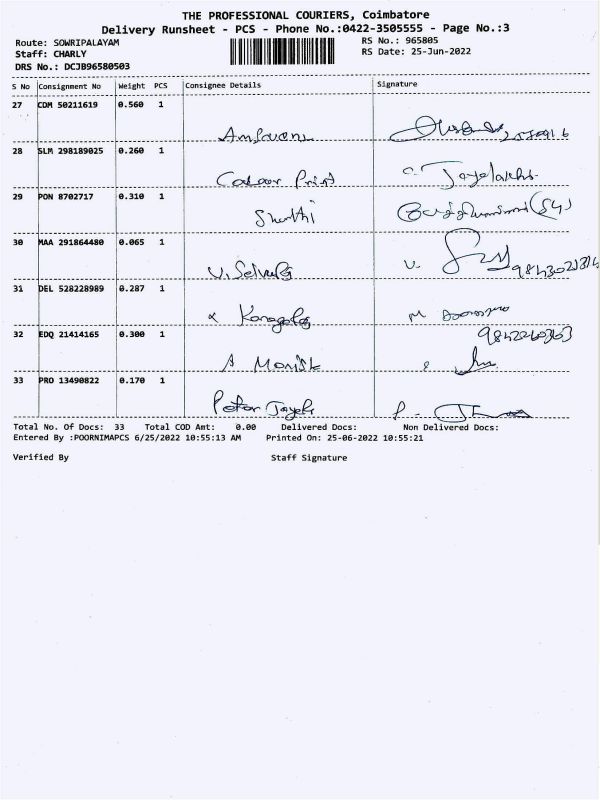 THE PROFESSIONAL COURIERS, Coimbatore
Delivery Runsheet - PCS - Phone No.:0422-3505555 - Page No.:3
Route: SOWRIPALAYAM RS No.: 965805
Staff: CHARLY RS Date: 25-Jun-2022
DRS No.: DCJB96580503
S No Consignment No Weight PCS Consignee Details Signature
27 CDM 50211619 0.560 1
28 SLM 298189025 0.260 1
Colour Print C. Jayalakshi
29 PON 8702717 0.310 1
Shruthi
30 MAA 291864480 0.065 1
V. Selvaraj V.
31 DEL 528228989 0.287 1
Kanagaraj M
32 EDQ 21414165 0.300 1 9842260363
A Monish
33 PRO 13490822 0.170 1
Peter Jayak
Total No. Of Docs: 33 Total COD Amt: 0.00 Delivered Docs: Non Delivered Docs:
Entered By :POORNIMAPCS 6/25/2022 10:55:13 AM Printed On: 25-06-2022 10:55:21
Verified By Staff Signature